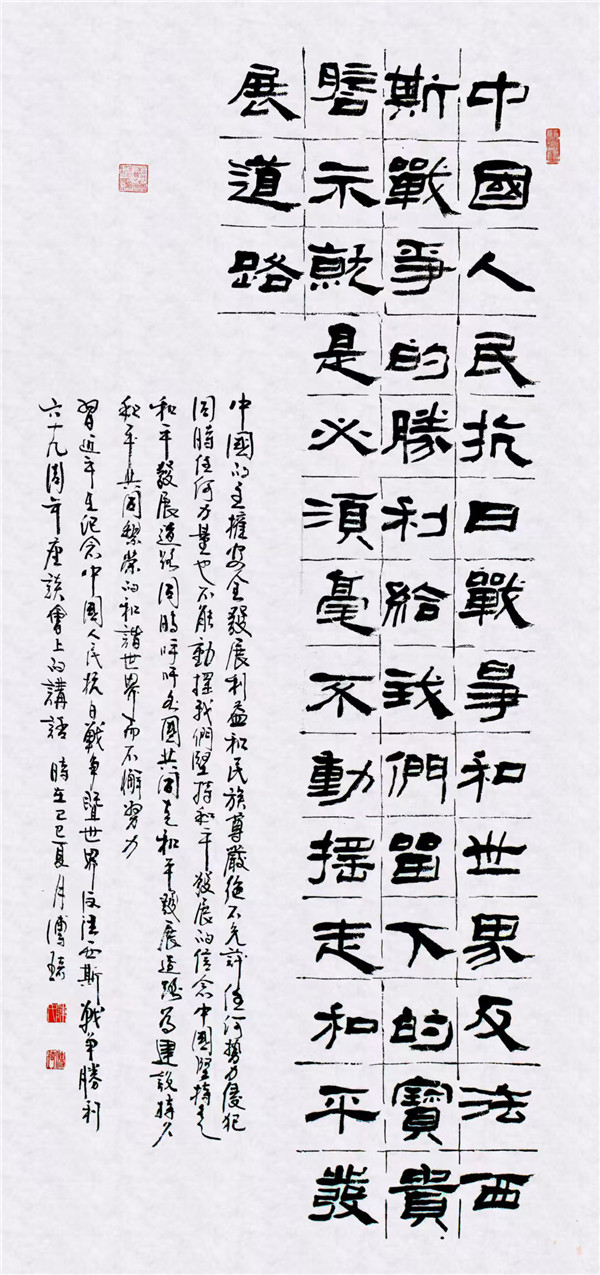 中國人民抗日戰爭和世界反法西
斯戰爭的勝利給我們留下的寶貴
啓示就是必須毫不動搖走和平發
展道路
中國的主權安全發展利益和民族尊嚴絕不允許任何勢力侵犯
同時任何力量也不能動搖我們堅持和平發展的信念中國堅持走
和平發展道路同時呼吁各國共同走和平發展道路為建設持久
和平共同繁榮的和諧世界而不懈努力
習近平在紀念中國人民抗日戰争暨世界反法西斯戰争勝利
六十九周年座談會上的講話 時在乙巳夏月